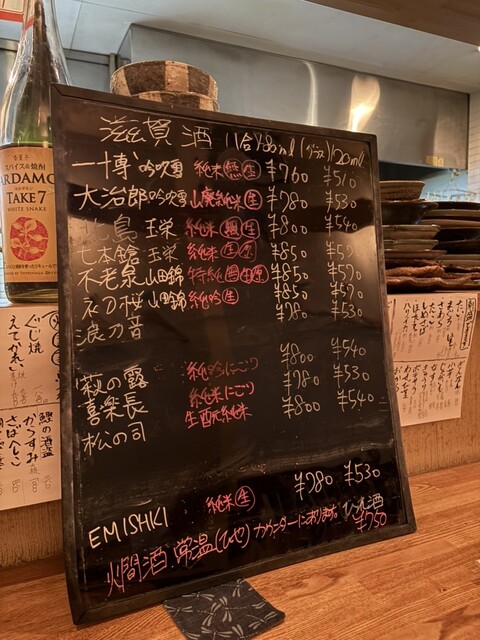 滋賀酒 1合180ml (グラス)120ml
一博 吟吹雪 純米 生 ¥760 ¥510
大治郎 吟吹雪 山廃純米 生 ¥780 ¥530
玉栄 純米 生 ¥800 ¥540
七本鎗 玉栄 純米 生 原 ¥850 ¥570
不老泉 山田錦 特純 生 原 ¥850 ¥570
山田錦 純吟 生 ¥850 ¥570
浪乃音 ¥780 ¥530
萩の露 純吟にごり ¥800 ¥540
喜楽長 純米にごり ¥780 ¥530
松の司 生酛純米 ¥800 ¥540
EMISHIKI 純米 生 ¥780 ¥530
燗酒、常温(ひや)カウンターにあります。 ひれ酒 ¥750
スパイス&焼酎
ARDAMO
TAKE 7
WHITE SNAKE
ぐじ焼
えてかれい
鰹の酒盗
からすみ
さばへしこ